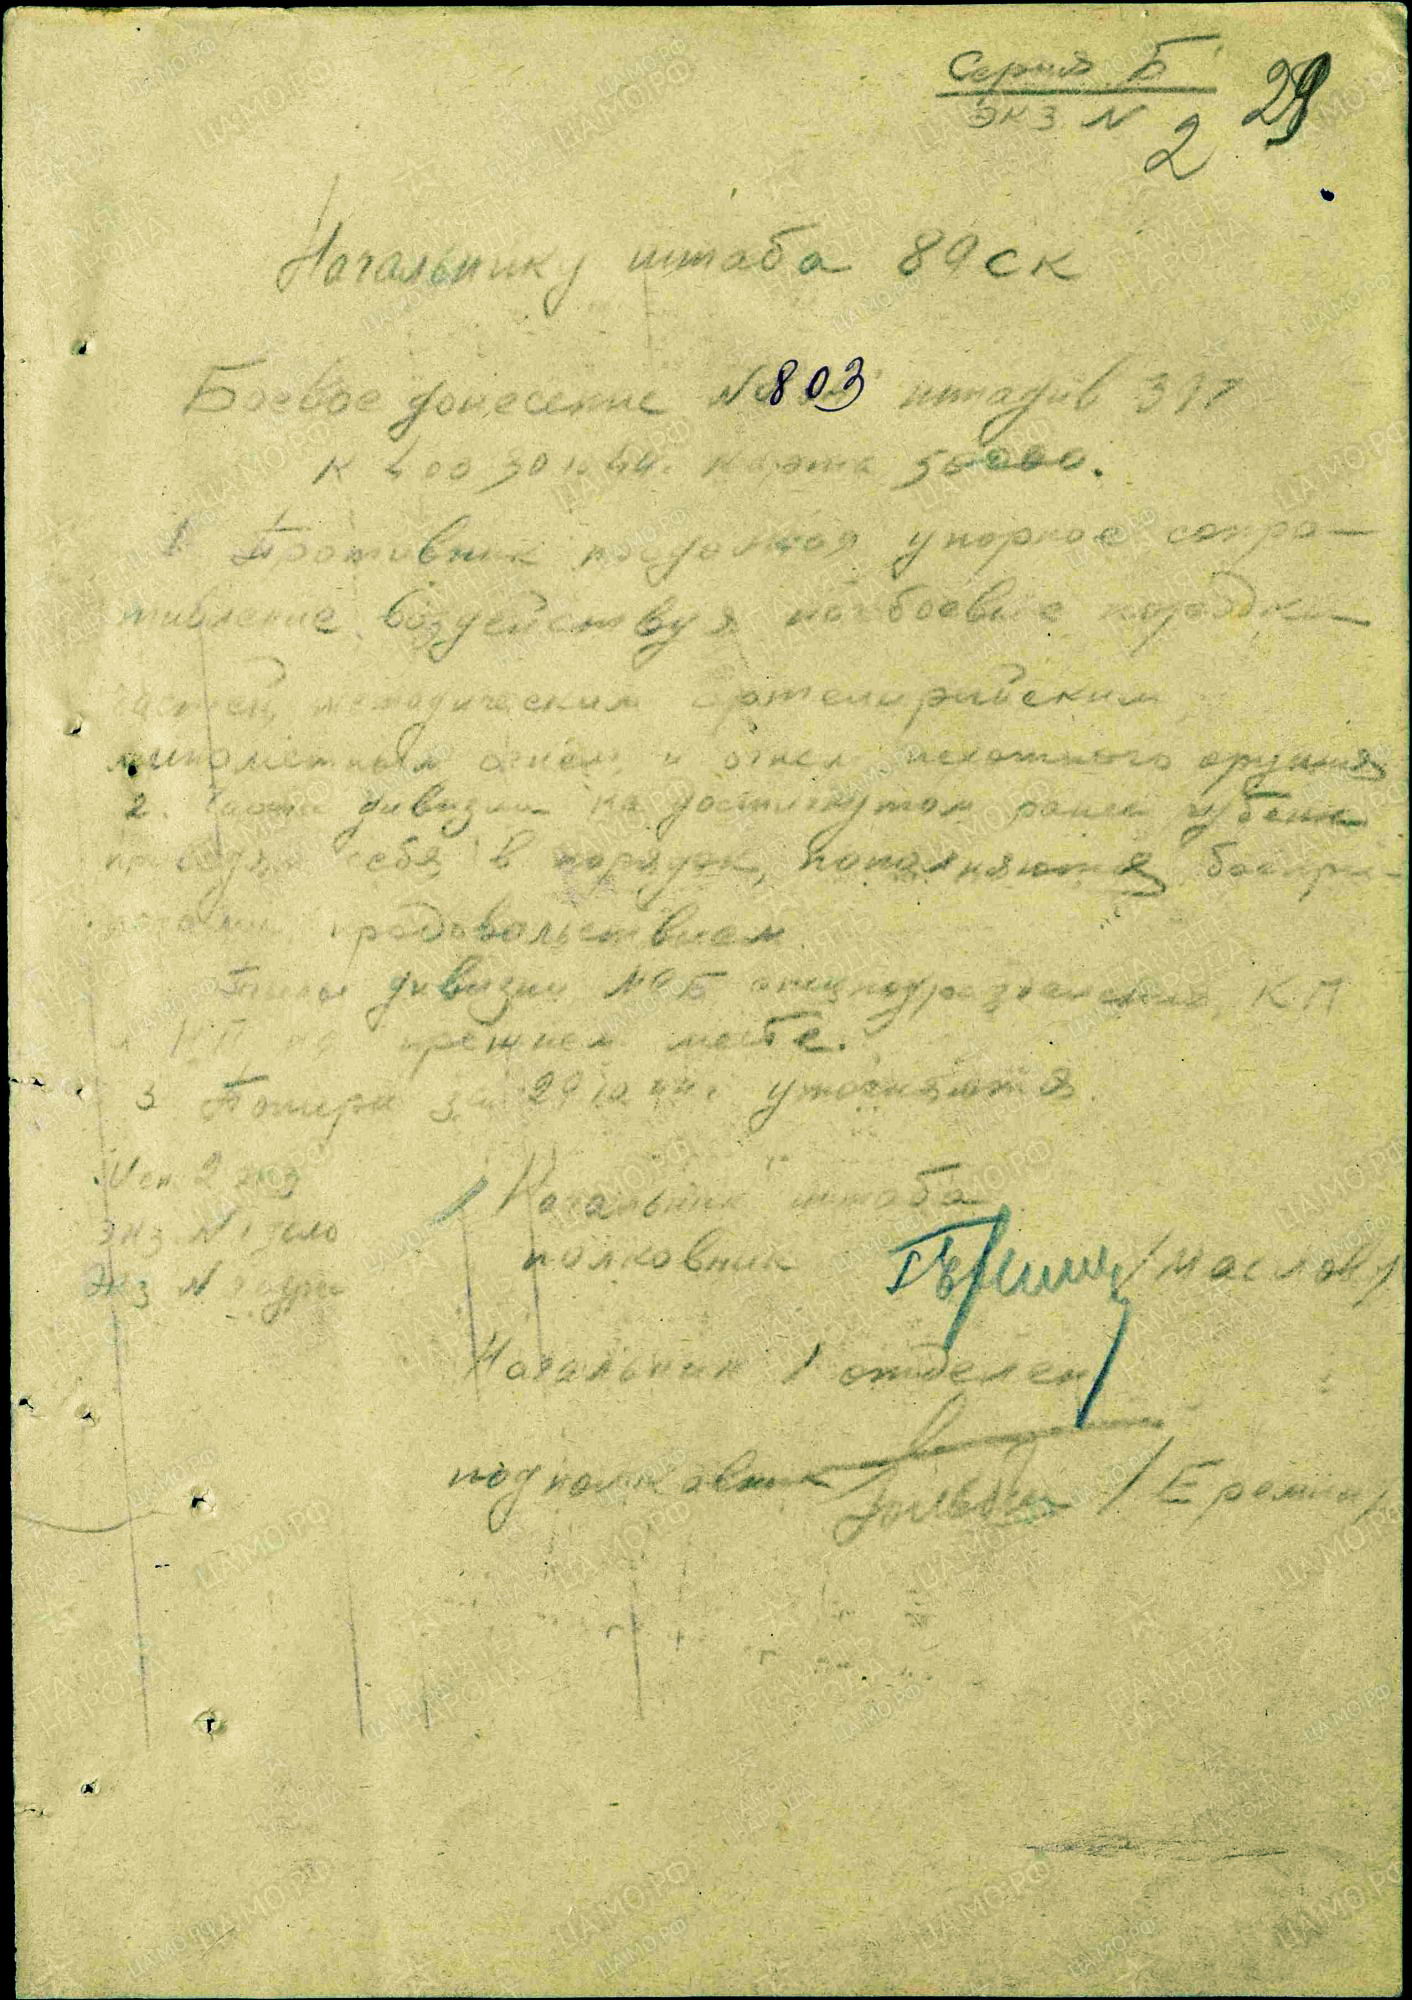 Серия Б
экз N 2
29
Начальнику штаба 89 ск
Боевое донесение № 803 штадив 397
к 4 00 30.10.44. карта 50000.
1. Противник продолжая упорное сопро-
тивление, воздействуя на боевые порядки
частей, методическим артелерийским
минометным огнем и огнем пехотного оружия
2. Части дивизии на достигнутом ранее рубеже
приводят себя в порядок, пополняются боепри-
пасами, продовольствием
Тылы дивизии, спецподразделения, КП
и НП на прежнем месте.
3 Потери за 29.10.44г. уточняются.
Исп. 2 экз
экз N 1 дело
Экз N 2 адрес
Начальник штаба
полковник /Маслов/
Начальник 1 отделен
подполковник /Еремин/